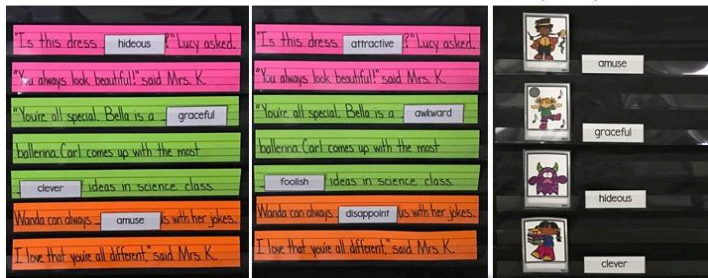 "Is this dress hideous ?" Lucy asked.
"You always look beautiful!" said Mrs. K.
"You're all special. Bella is a graceful
ballerina. Carl comes up with the most
clever ideas in science class.
Wanda can always amuse us with her jokes.
I love that you're all different," said Mrs. K.
"Is this dress attractive ?" Lucy asked.
"You always look beautiful!" said Mrs. K.
"You're all special. Bella is a awkward
ballerina. Carl comes up with the most
foolish ideas in science class.
Wanda can always disappoint us with her jokes.
I love that you're all different," said Mrs. K.
amuse
graceful
hideous
clever